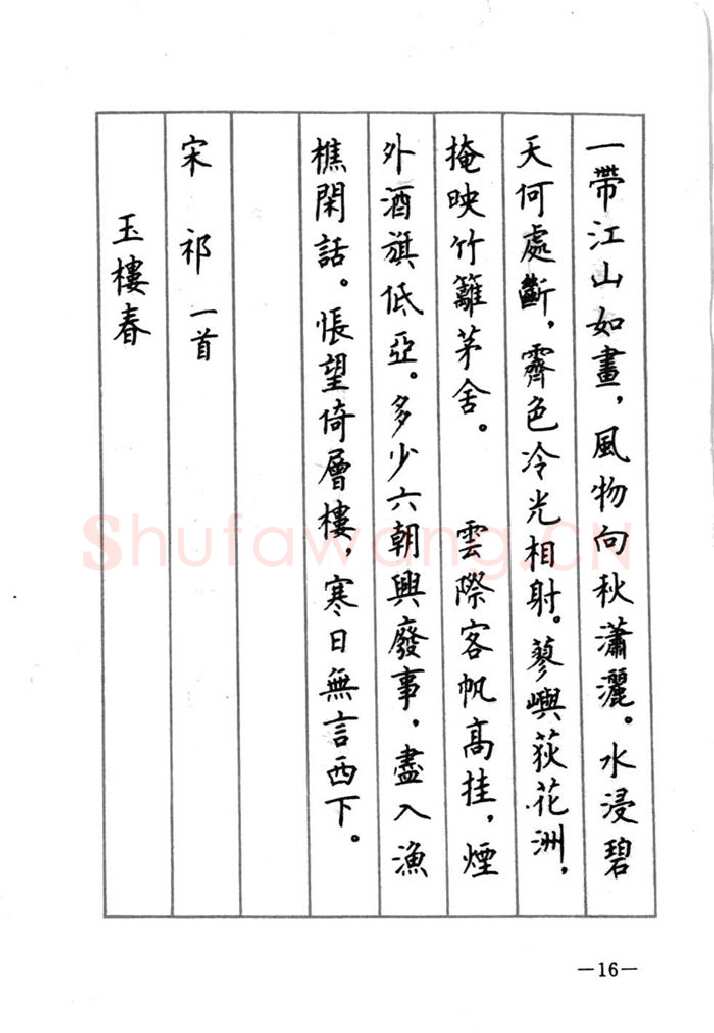 一帶江山如畫，風物向秋瀟灑。水浸碧
天何處斷，霽色冷光相射。蓼嶼荻花洲，
掩映竹籬茅舍。　　雲際客帆高挂，煙
外酒旗低亞。多少六朝興廢事，盡入漁
樵閑話。悵望倚層樓，寒日無言西下。
宋　祁　一首
玉樓春
Shufawang.CN
—16—